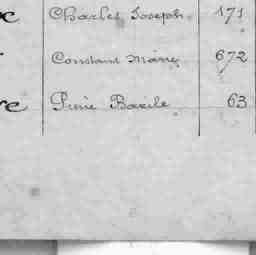 Charles Joseph 171
Constant Marie 672
Pierre Bazile 63